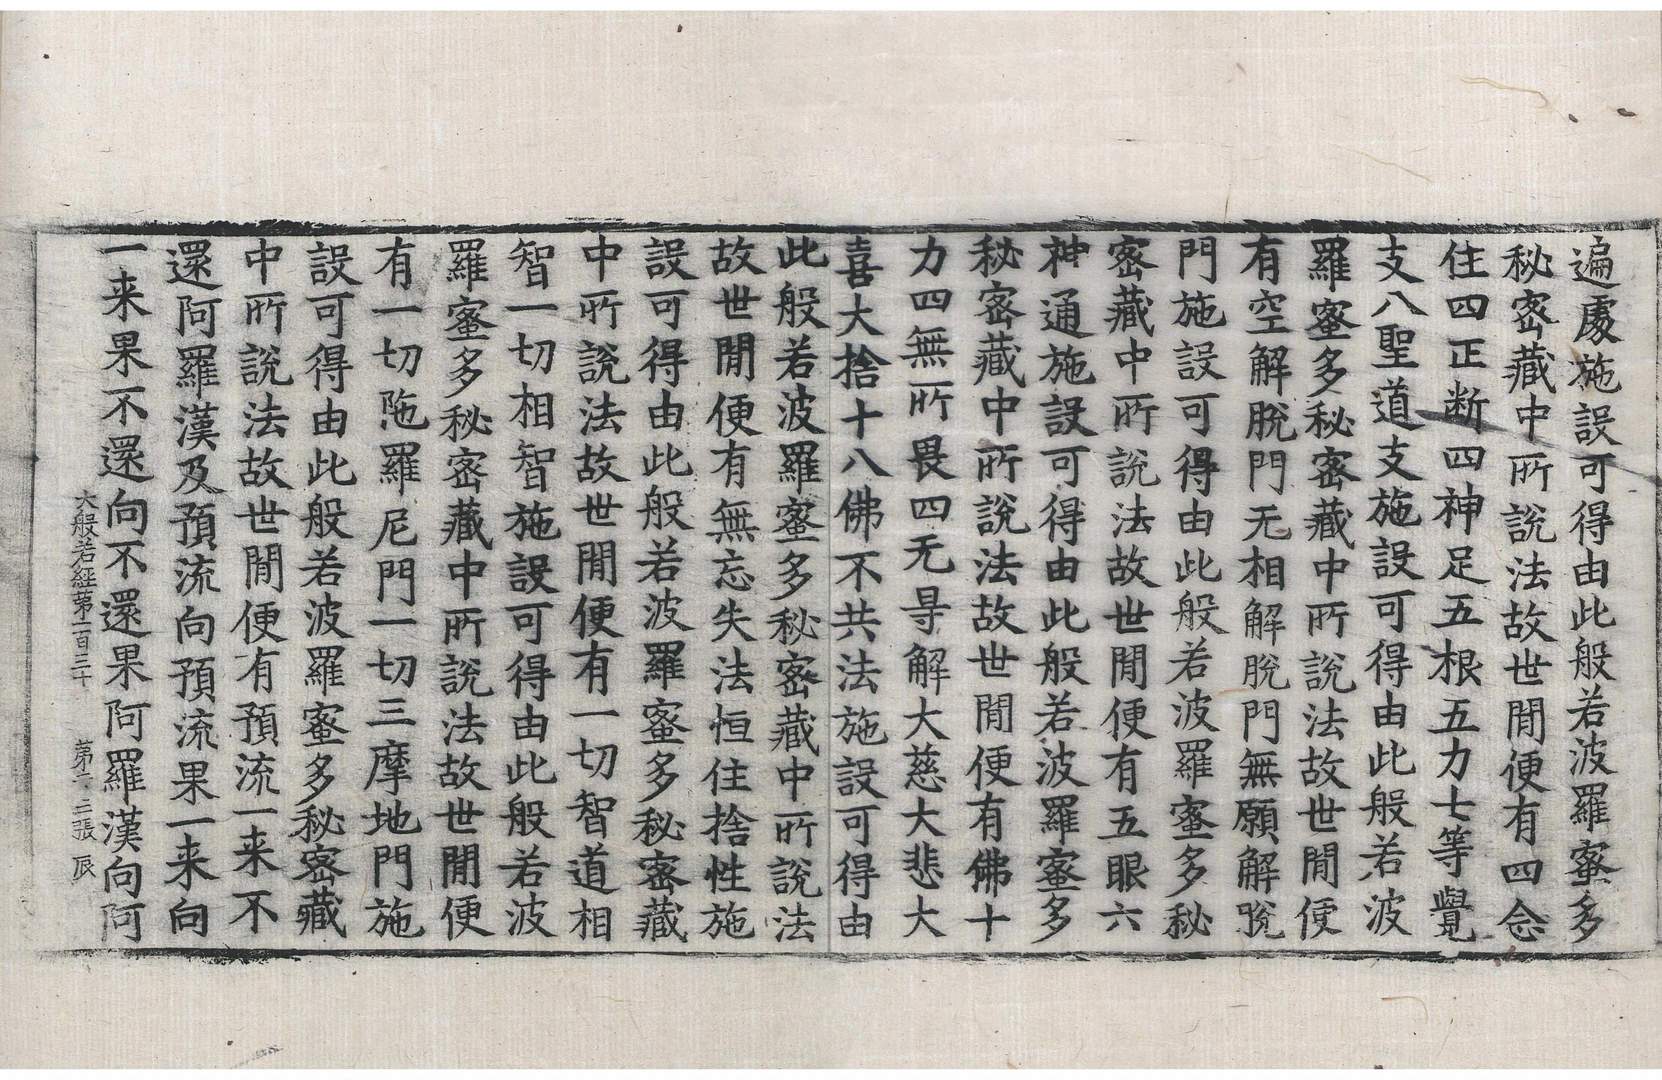 遍處施設可得由此般若波羅蜜多
秘密藏中所說法故世間便有四念
住四正断四神足五根五力七等覺
支八聖道支施設可得由此般若波
羅蜜多秘密藏中所說法故世間便
有空解脫門无相解脫門無願解脫
門施設可得由此般若波羅蜜多秘
密藏中所說法故世間便有五眼六
神通施設可得由此般若波羅蜜多
秘密藏中所說法故世間便有佛十
力四無所畏四无㝵解大慈大悲大
喜大捨十八佛不共法施設可得由
此般若波羅蜜多秘密藏中所說法
故世間便有無忘失法恒住捨性施
設可得由此般若波羅蜜多秘密藏
中所說法故世間便有一切智道相
智一切相智施設可得由此般若波
羅蜜多秘密藏中所說法故世間便
有一切陁羅尼門一切三摩地門施
設可得由此般若波羅蜜多秘密藏
中所說法故世間便有預流一来不
還阿羅漢及預流向預流果一来向
一来果不還向不還果阿羅漢向阿
大般若經第一百三十 第 三張 辰